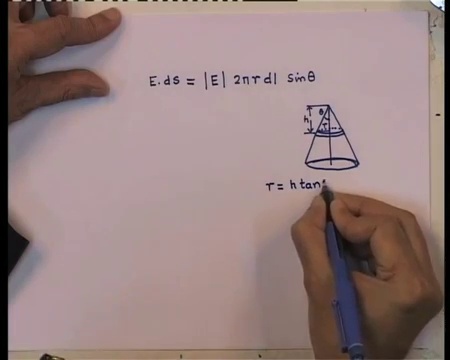 E. ds = |E| 2πr dl sinθ
θ
h
r
r = h tan